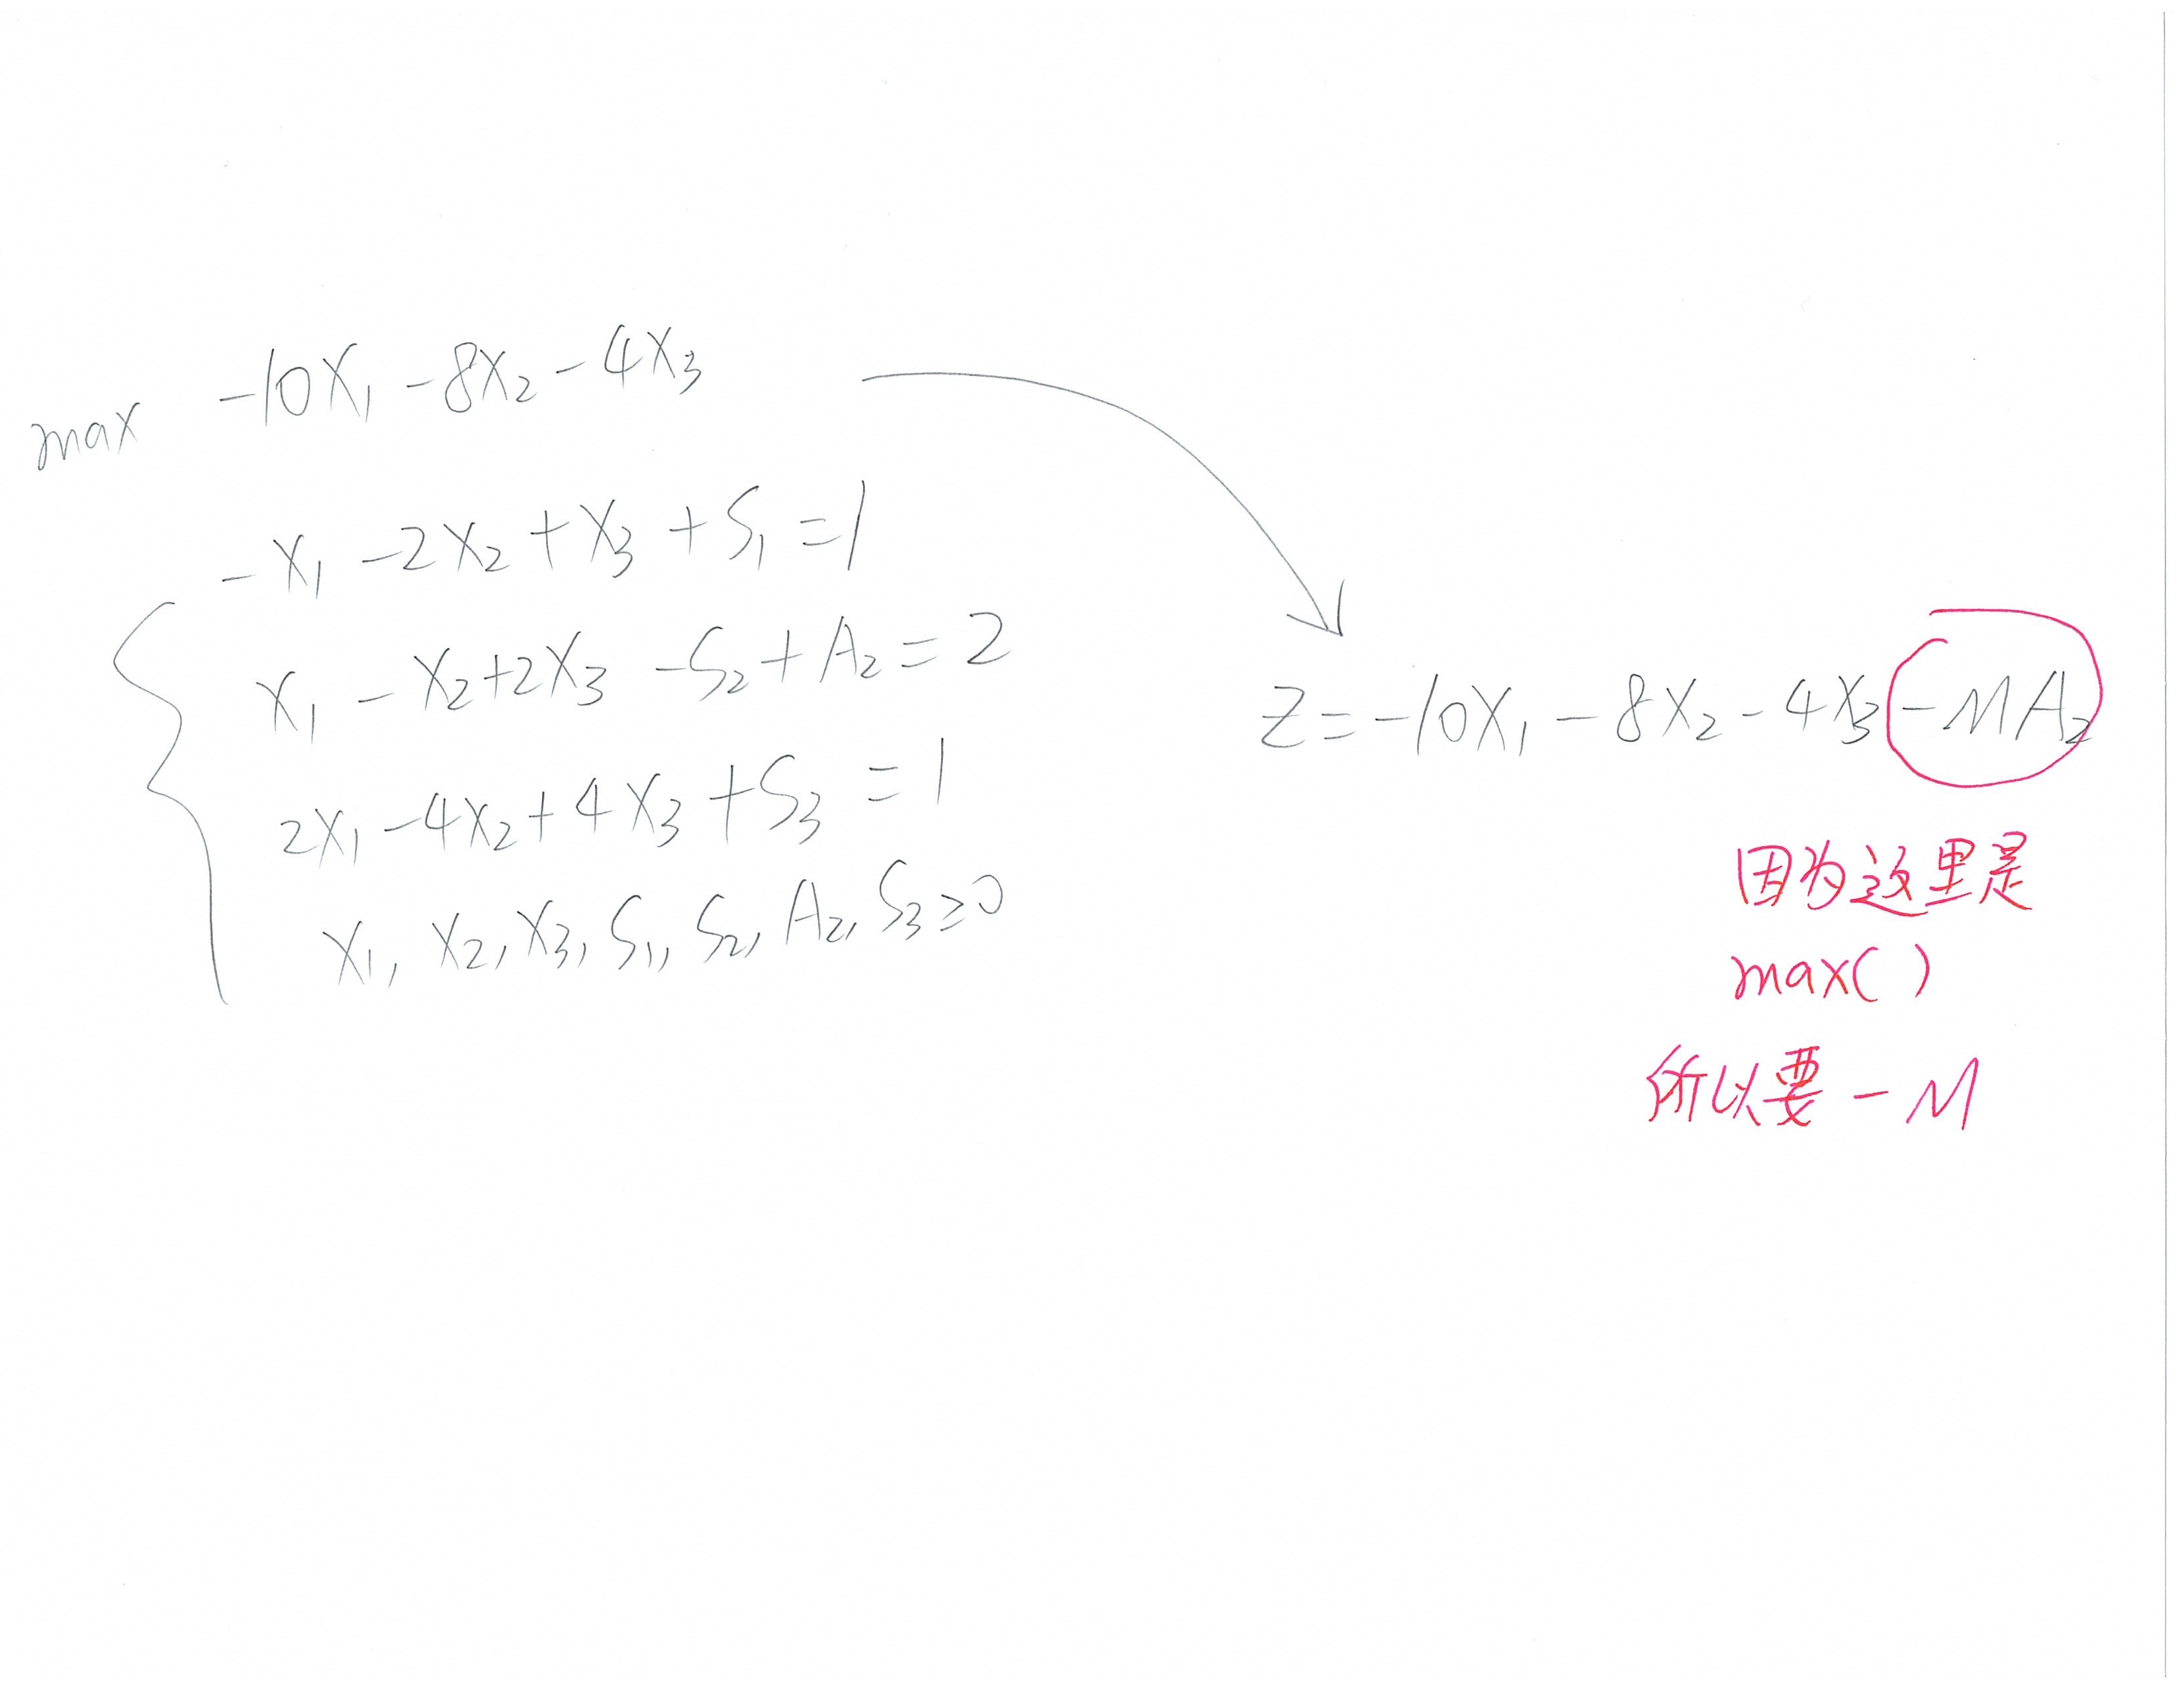 max -10X₁ -8X₂ -4X₃
-X₁ -2X₂ +X₃ +S₁ =1
X₁ -X₂+2X₃ -S₂+A₂=2
2X₁-4X₂+4X₃+S₃ =1
X₁, X₂, X₃, S₁, S₂, A₂, S₃≥0
Z=-10X₁-8X₂-4X₃-MA₂
因为这里是
max( )
所以要-M